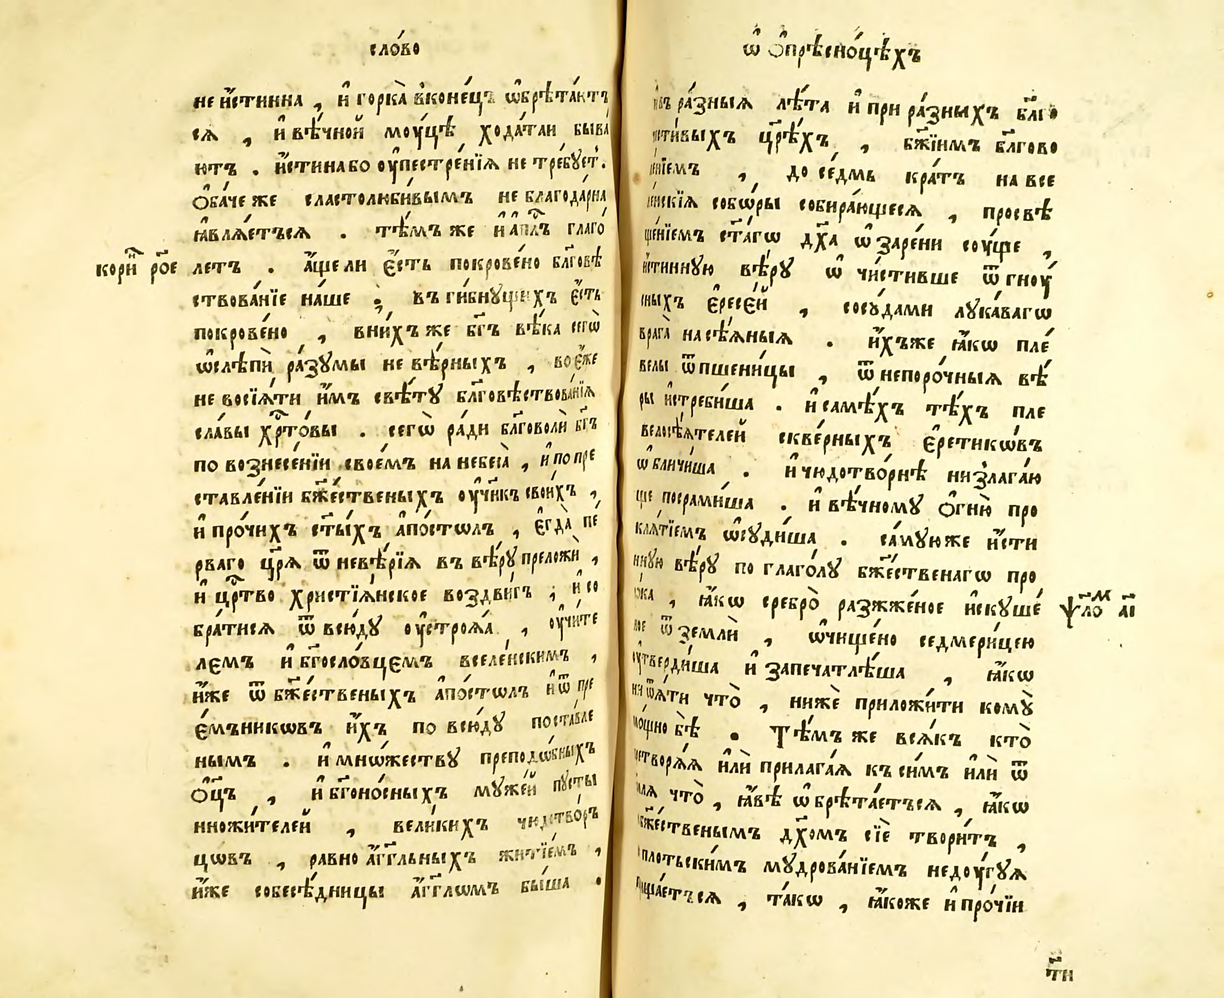 сло́во
не и҆́стинна , и҆ горка̀ вконе́цъ ѡ҆брѣта́ютъ
сѧ , и҆ вѣ́чной мꙋ́цѣ хода́таи быва́
ютъ . и҆́стина бо ᲂу҆пестре́нїѧ не тре́бꙋетъ .
Ѻ҆ба́че же сластолюби́вымъ не благода́рна
ꙗ҆влѧ́етъсѧ . тѣ́мъ же и҆ а҆пⷭ҇лъ глаго́
кори́н рѯе
летъ . а҆́ще ли є҆́сть покрове́но бл҃говѣ
ствова́нїе на́ше , въ ги́бнꙋщихъ є҆́сть
покрове́но , вни́хъ же бг҃ъ вѣ́ка сегѡ̀
ѡ҆слѣпѝ ра́зꙋмы не вѣ́рныхъ , во є҆́же
не восїѧ́ти и҆̀мъ свѣ́тꙋ бл҃говѣствова́нїѧ
сла́вы хрⷭ҇то́вы . сегѡ̀ ра́ди бл҃говолѝ бг҃ъ
по вознесе́нїи свое́мъ на небеса̀ , и҆ по пре
ставле́нїи бж҃е́ственыхъ ᲂу҆ч҃нкъ свои́хъ ,
и҆ про́чихъ ст҃ы́хъ а҆по́столъ , є҆гда̀ пе́
рваго цр҃ѧ̀ ѿ невѣ́рїѧ въ вѣ́рꙋ преложѝ ,
и҆ црⷭ҇тво христїѧ́нское воздви́гъ , и҆ со
бра́тисѧ ѿ всю́дꙋ ᲂу҆строѧ́ѧ , ᲂу҆чи́те
лємъ и҆ бг҃осло́вцємъ вселе́нскимъ ,
и҆́же ѿ бж҃е́ственыхъ а҆по́столъ и҆ ѿ пре
є́мъникѡвъ и҆́хъ по всю́дꙋ поста́вле
нымъ . и҆ мно́жествꙋ преподо́бныхъ
Ѻ҆ц҃ъ , и҆ бг҃оно́сныхъ мꙋже́й пꙋсты
ножи́телей , вели́кихъ чюдтво́ръ
цѡвъ , равно а҆́гг҃льныхъ житїе́мъ ,
и҆́же собесѣ́дницы а҆́гг҃лѡмъ бы́ша .
ѡ҆ ѻ҆прѣсно́цѣхъ
ра́зныѧ лѣ́та и҆ при ра́зныхъ бл҃го
цр҃ѣхъ , бж҃їимъ бл҃гово
до се́дмь кра́тъ на все
собѡ́ры собира́ющесѧ , просвѣ
ще́нїемъ ст҃а́гѡ дх҃а ѡ҆заре́ни сꙋ́ще ,
и҆́стинную вѣ́рꙋ ѡ҆чи́стивше ѿ гнꙋ́
сныхъ є҆ресе́й , сосꙋ́дами лꙋка́вагѡ
врага̀ насѣ́ѧныѧ . и҆́хъже ꙗ҆́кѡ пле́
велы ѿ пшени́цы , ѿ непоро́чныѧ вѣ́
ры и҆стреби́ша . и҆ самѣ́хъ тѣ́хъ пле
велосѣ́ѧтелей скве́рныхъ є҆ретикѡ́въ
ѡ҆бличи́ша . и҆ чюдотво́рнѣ низлага́ю
ще посрами́ша . и҆ вѣ́чномꙋ ѻ҆гню̀ про
клѧ́тїемъ ѡ҆сꙋди́ша . са́мꙋюже и҆́сти
ннꙋю вѣ́рꙋ по глаго́лꙋ бж҃е́ственагѡ про
ро́ка , ꙗ҆́кѡ сребро̀ разжже́ное и҆скꙋше́
ѱало́м а҃і
ное ѿ землѝ , ѡ҆чище́но седмери́цею
ᲂу҆тверди́ша и҆ запечатлѣ́ша , ꙗ҆́кѡ
ни ѿѧ́ти что̀ , нижѐ приложи́ти комꙋ̀
мо́щно бѣ̀ . Тѣ́мъ же всѧ́къ кто̀
и҆лѝ прилага́ѧ къ си́мъ и҆лѝ ѿ
что̀ , ꙗ҆́вѣ ѡ҆брѣта́етъсѧ , ꙗ҆́кѡ
бж҃е́ственымъ дх҃омъ сїѐ твори́тъ ,
пло́тьскимъ мꙋдрова́нїемъ недꙋ́гꙋѧ
та́кѡ , ꙗ҆́коже и҆ про́чїи
т҃н